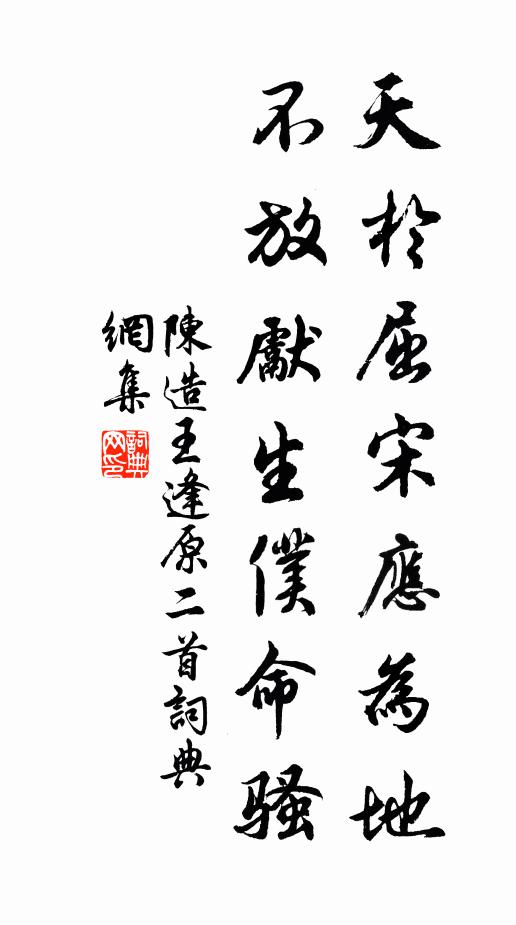 天於屈宋應為地
不放獻生僕命騷
陳造王逢原二首詞典
網集
詞典網印